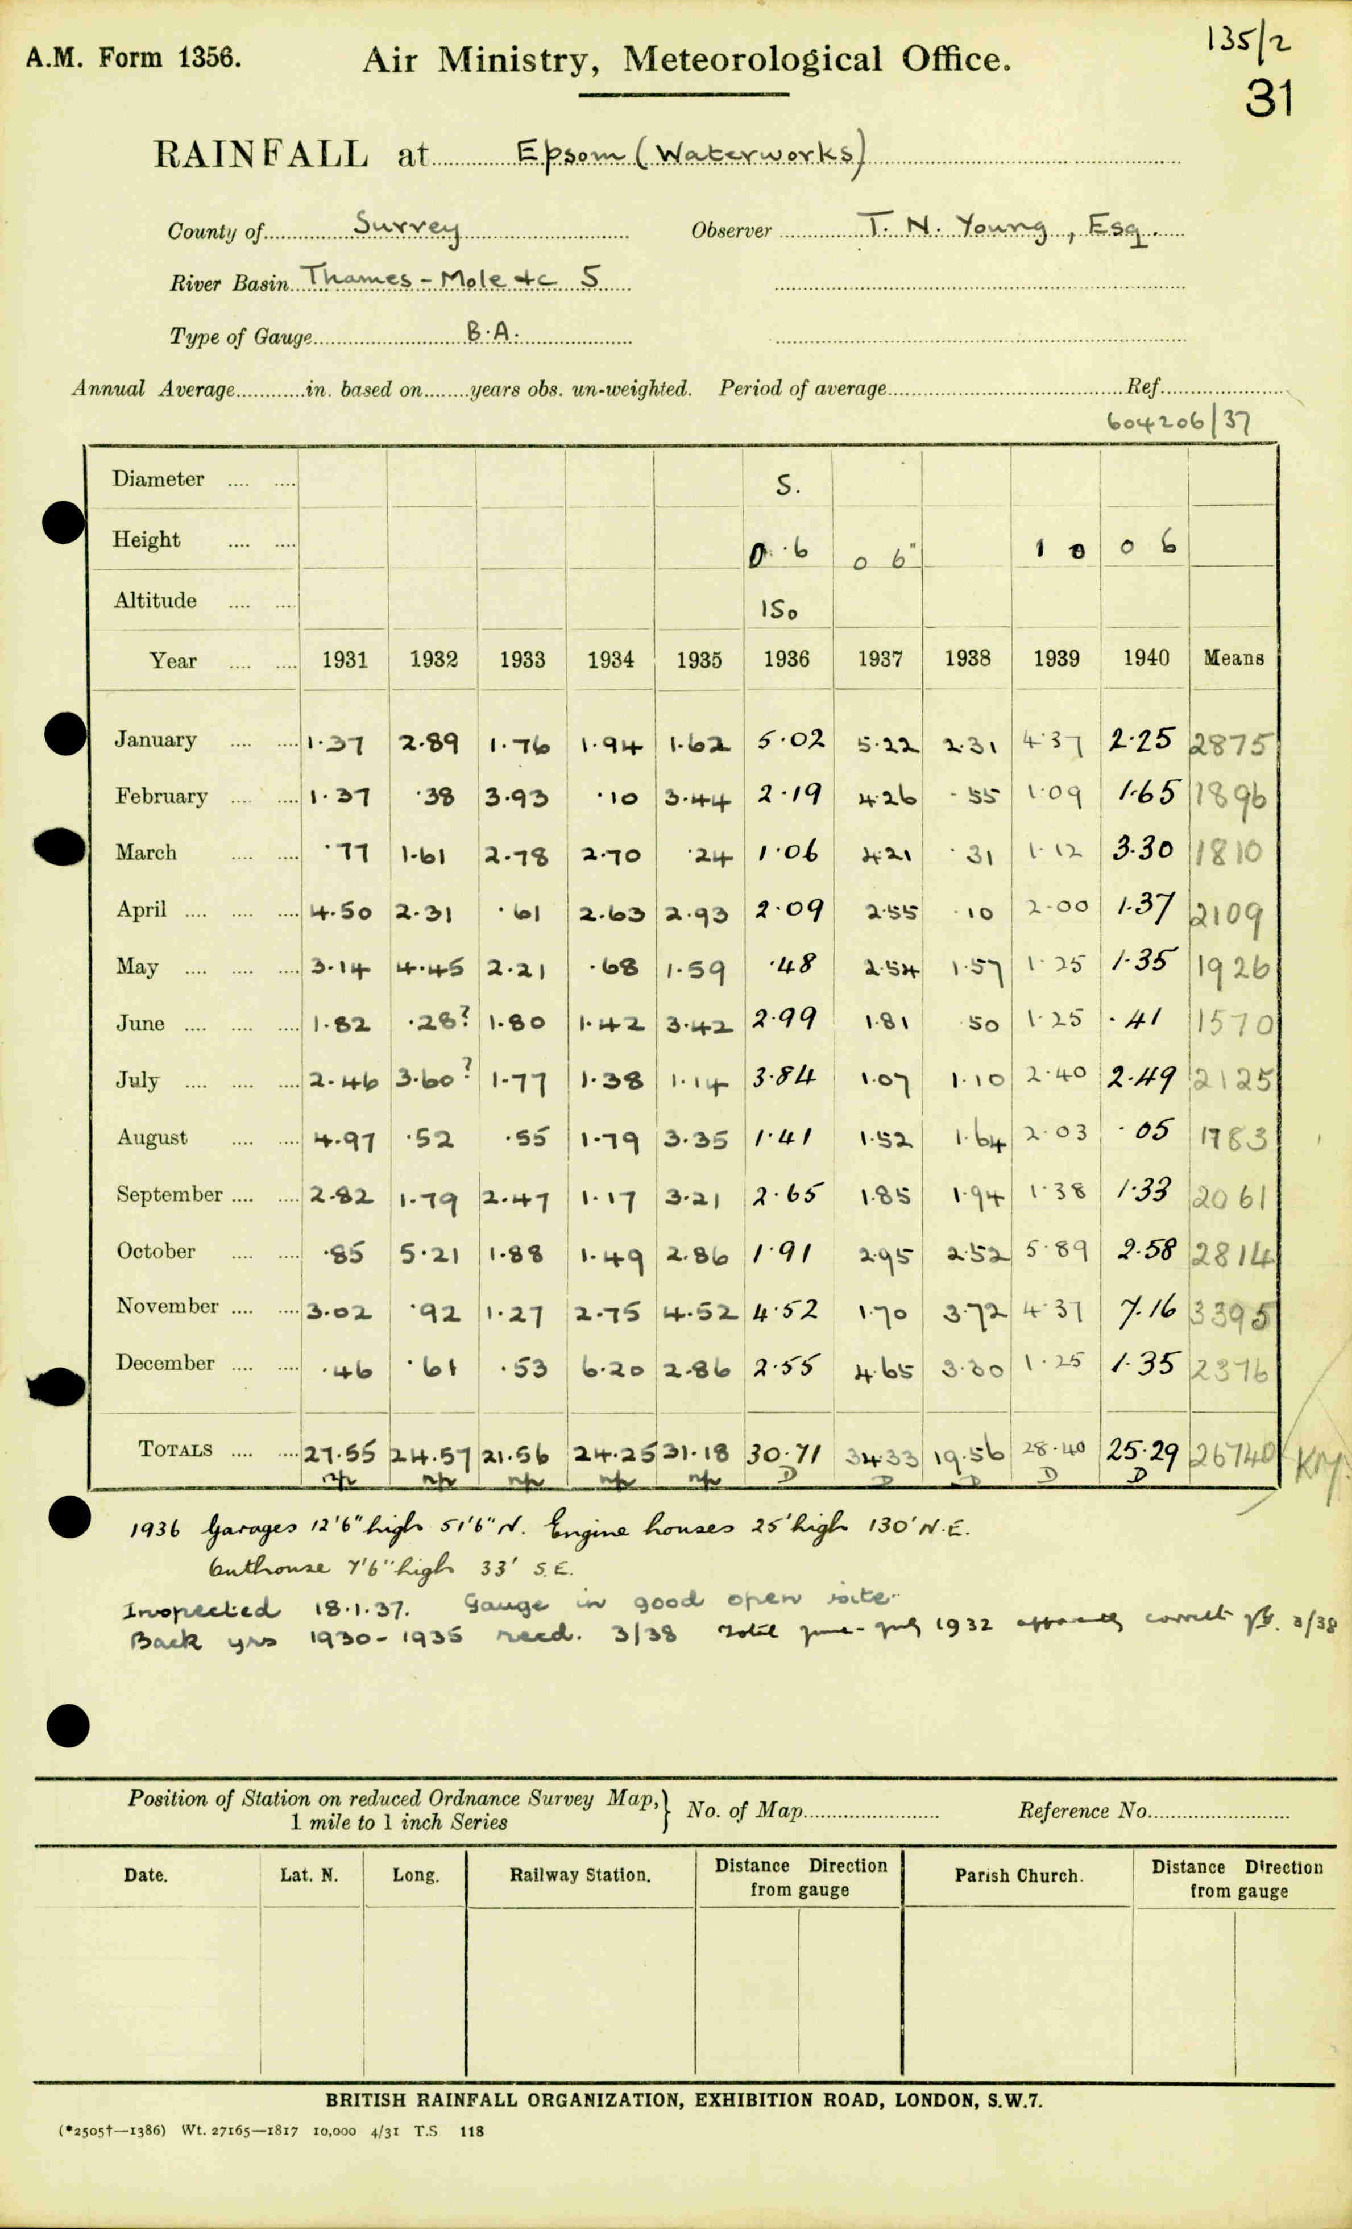 135/2
A.M. Form 1356. Air Ministry, Meteorological Office.
31
RAINFALL at Epsom (Waterworks)
County of Surrey Observer T. N. Young, Esq.
River Basin Thames - Mole &c 5
Type of Gauge B.A.
Annual Average in. based on years obs. un-weighted. Period of average Ref.
604206/37
Diameter 5.
Height 0 .6 0 6" 1 0 0 6
Altitude 150
Year 1931 1932 1933 1934 1935 1936 1937 1938 1939 1940 Means
January 1.37 2.89 1.76 1.94 1.62 5.02 5.22 2.31 4.37 2.25 2875
February 1.37 .38 3.93 .10 3.44 2.19 4.26 .55 1.09 1.65 1896
March .77 1.61 2.78 2.70 .24 1.06 4.21 .31 1.12 3.30 1810
April 4.50 2.31 .61 2.63 2.93 2.09 2.55 .10 2.00 1.37 2109
May 3.14 4.45 2.21 .68 1.59 .48 2.54 1.57 1.25 1.35 1926
June 1.82 .28? 1.80 1.42 3.42 2.99 1.81 .50 1.25 .41 1570
July 2.46 3.60? 1.77 1.38 1.14 3.84 1.07 1.10 2.40 2.49 2125
August 4.97 .52 .55 1.79 3.35 1.41 1.52 1.64 2.03 .05 1783
September 2.82 1.79 2.47 1.17 3.21 2.65 1.85 1.94 1.38 1.33 2061
October .85 5.21 1.88 1.49 2.86 1.91 2.95 2.52 5.89 2.58 2814
November 3.02 .92 1.27 2.75 4.52 4.52 1.70 3.72 4.37 7.16 3395
December .46 .61 .53 6.20 2.86 2.55 4.65 3.30 1.25 1.35 2376
TOTALS 27.55 24.57 21.56 24.25 31.18 30.71 34.33 19.56 28.40 25.29 26740 KM.
np np np np np D D D D D
1936 Garages 12'6" high 51'6" N. Engine houses 25' high 130' N.E.
Outhouse 7'6" high 33' S.E.
Inspected 18.1.37. Gauge in good open site
Back yrs 1930-1935 recd. 3/38 Total June-July 1932 apparently correct 3/38
Position of Station on reduced Ordnance Survey Map, } No. of Map Reference No.
1 mile to 1 inch Series
Date. Lat. N. Long. Railway Station. Distance Direction from gauge Parish Church. Distance Direction from gauge
BRITISH RAINFALL ORGANIZATION, EXHIBITION ROAD, LONDON, S.W.7.
(*2505†—1386) Wt. 27165—1817 10,000 4/31 T.S 118